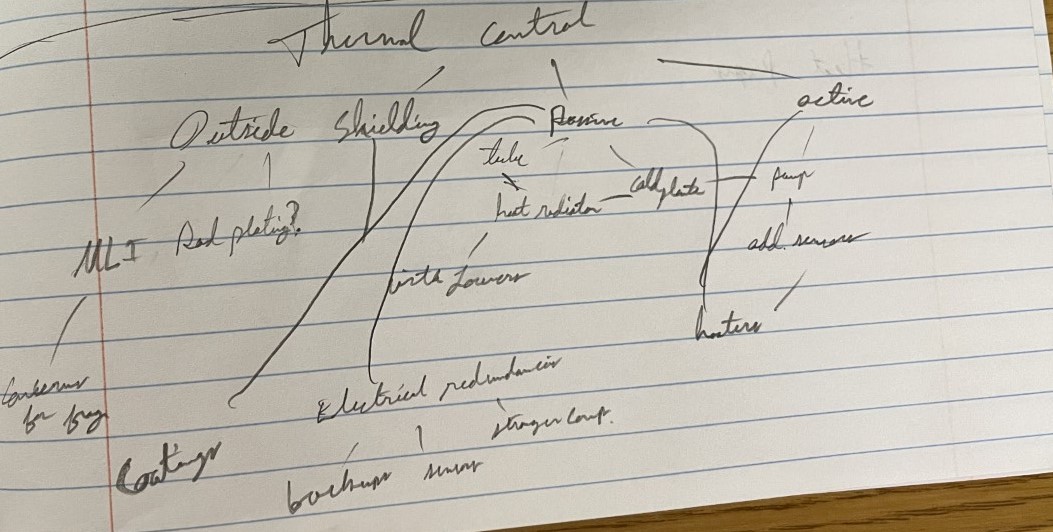 Thermal control
Outside Shielding
Passive
active
tube
heat radiator
coldplate
pump
MLI
Rad plating?
add. sensors
with Louvers
heaters
Electrical redundancies
Concerns
for
Coatings
backups
sensors
stronger comp.